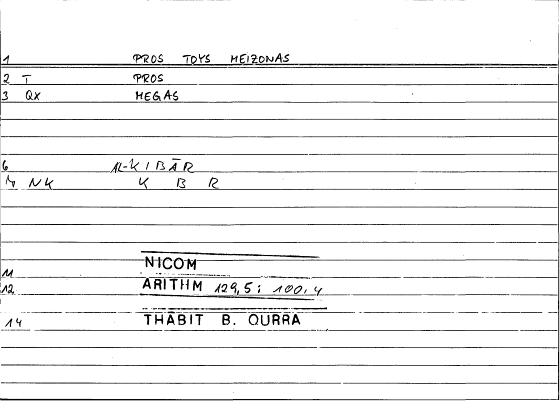 1 PROS TOYS MEIZONAS
2 T PROS
3 QX MEGAS
6 AL-KIBĀR
7 NK K B R
NICOM
11
12 ARITHM 129,5; 100,4
14 THABIT B. QURRA